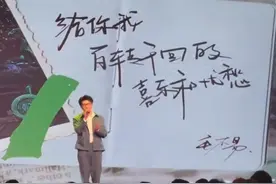 给你我
百转千回的
喜乐和忧愁
毛不易